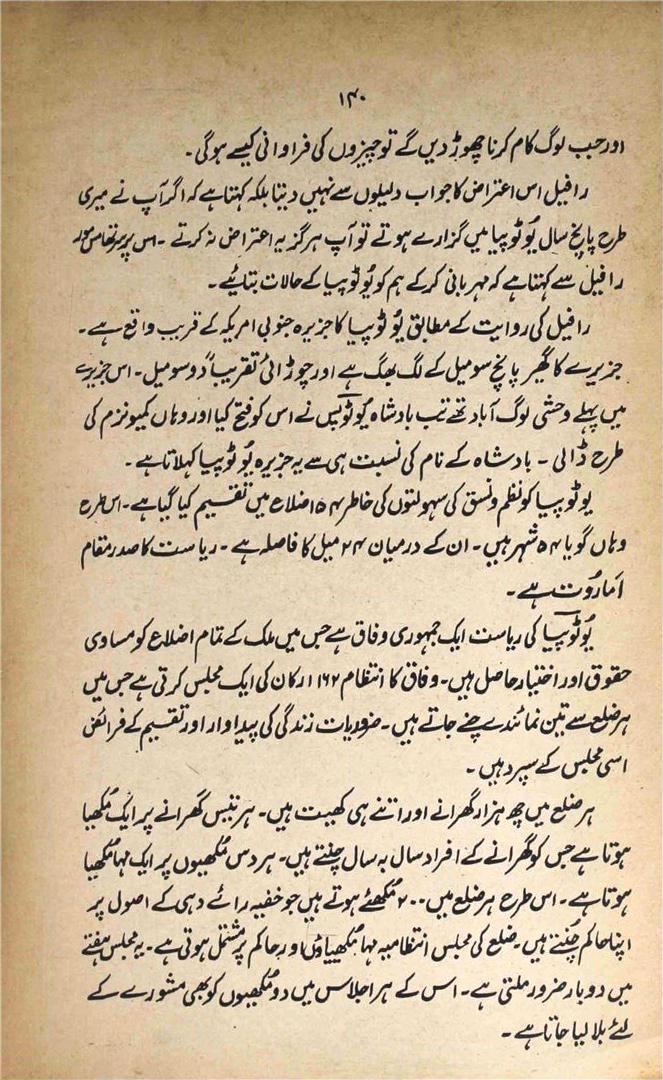 ۱۴۰
اور جب لوگ کام کرنا چھوڑ دیں گے تو چیزوں کی فراوانی کیسے ہوگی۔
رافیل اس اعتراض کا جواب دلیلوں سے نہیں دیتا بلکہ کہتا ہے کہ اگر آپ نے میری
طرح پانچ سال یُوٹوپیا میں گزارے ہوتے تو آپ ہرگز یہ اعتراض نہ کرتے۔ اس پر سر تھامس مور
رافیل سے کہتا ہے کہ مہربانی کرکے ہم کو یُوٹوپیا کے حالات بتائیے۔
رافیل کی روایت کے مطابق یُوٹوپیا کا جزیرہ جنوبی امریکہ کے قریب واقع ہے۔
جزیرے کا گھیر پانچ سو میل کے لگ بھگ ہے اور چوڑائی تقریباً دو سو میل۔ اس جزیرے
میں پہلے وحشی لوگ آباد تھے تب بادشاہ یُوٹوپس نے اس کو فتح کیا اور وہاں کمیونزم کی
طرح ڈالی۔ بادشاہ کے نام کی نسبت ہی سے یہ جزیرہ یُوٹوپیا کہلاتا ہے۔
یوٹوپیا کو نظم و نسق کی سہولتوں کی خاطر ۵۴ اضلاع میں تقسیم کیا گیا ہے۔ اس طرح
وہاں گویا ۵۴ شہر ہیں۔ ان کے درمیان ۲۴ میل کا فاصلہ ہے۔ ریاست کا صدر مقام
اَماروُت ہے۔
یُوٹوپیا کی ریاست ایک جمہوری وفاق ہے جس میں ملک کے تمام اضلاع کو مساوی
حقوق اور اختیار حاصل ہیں۔ وفاق کا انتظام ۱۶۲ ارکان کی ایک مجلس کرتی ہے جس میں
ہر ضلع سے تین نمائندے چنے جاتے ہیں۔ ضروریات زندگی کی پیداوار اور تقسیم کے فرائض
اسی مجلس کے سپرد ہیں۔
ہر ضلع میں چھ ہزار گھرانے اور اتنے ہی کھیت ہیں۔ ہر تیس گھرانے پر ایک مُکھیا
ہوتا ہے جس کو گھرانے کے افراد سال بہ سال چنتے ہیں۔ ہر دس مُکھیوں پر ایک مہا مُکھیا
ہوتا ہے۔ اس طرح ہر ضلع میں ۲۰۰ مُکھئے ہوتے ہیں جو خفیہ رائے دہی کے اصول پر
اپنا حاکم چُنتے ہیں۔ ضلع کی مجلس انتظامیہ مہا مُکھیاؤں اور حاکم پر مشتمل ہوتی ہے۔ یہ مجلس ہفتے
میں دو بار ضرور ملتی ہے۔ اس کے ہر اجلاس میں دو مُکھیوں کو بھی مشورے کے
لئے بلا لیا جاتا ہے۔